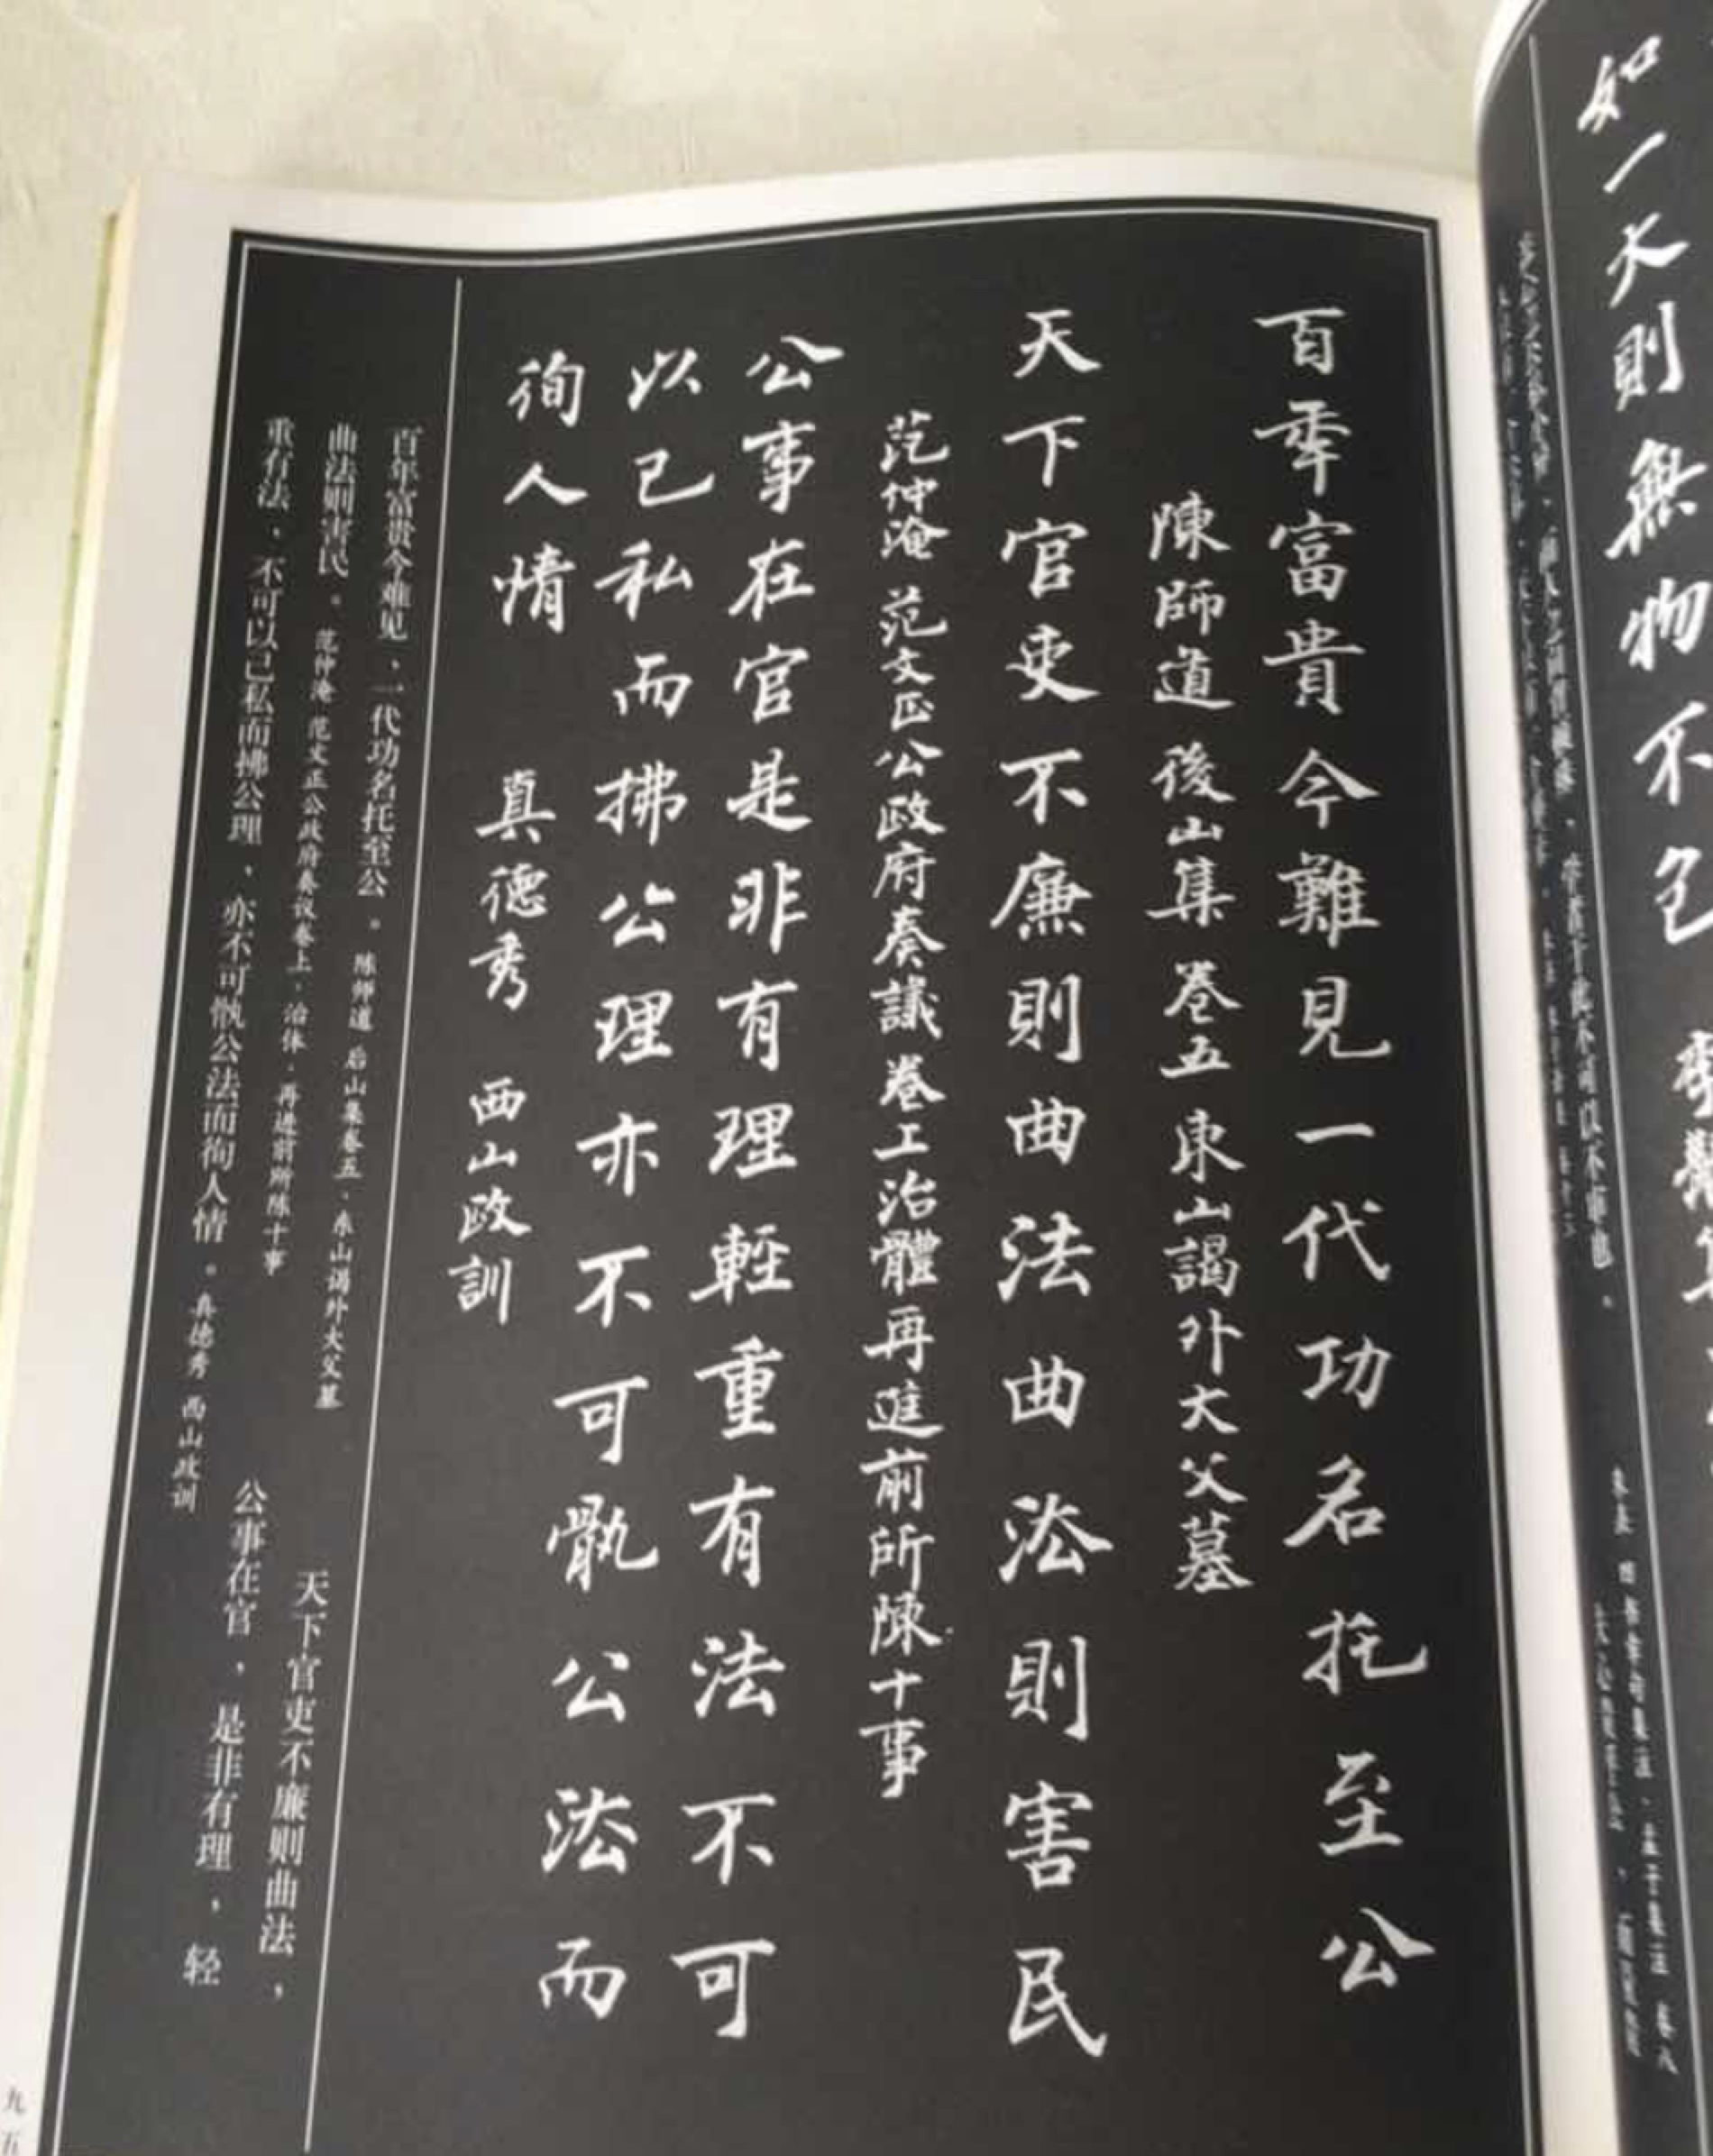 如一大則無物不包
百年富貴今難見一代功名托至公
陳師道 後山集 卷五 東山謁外大父墓
天下官吏不廉則曲法曲法則害民
范仲淹 范文正公政府奏議卷上治體再進前所陳十事
公事在官是非有理輕重有法不可
以己私而拂公理亦不可骩公法而
徇人情 真德秀 西山政訓
百年富贵今难见，一代功名托至公。陈师道 后山集卷五·东山谒外大父墓
天下官吏不廉则曲法，
曲法则害民。范仲淹 范文正公政府奏议卷上·治体·再进前所陈十事
公事在官，是非有理，轻
重有法，不可以己私而拂公理，亦不可骩公法而徇人情。真德秀 西山政训
九五